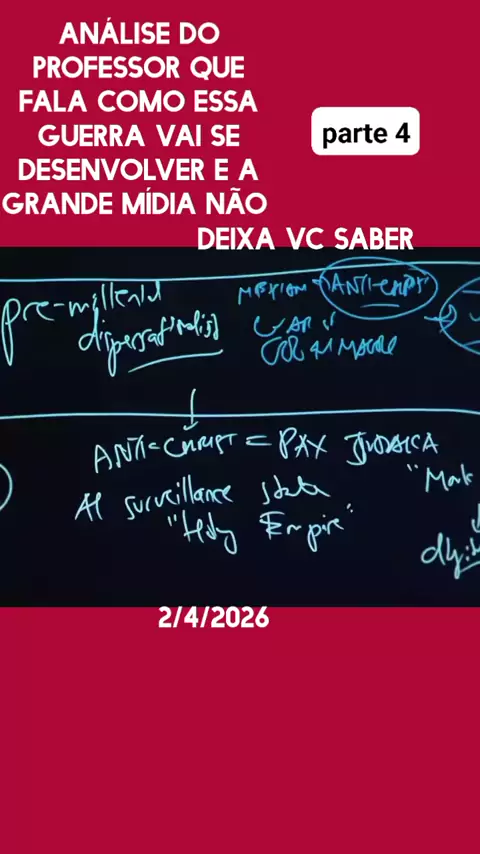 ANÁLISE DO
PROFESSOR QUE
FALA COMO ESSA
GUERRA VAI SE
DESENVOLVER E A
GRANDE MÍDIA NÃO
DEIXA VC SABER
parte 4
pre-millenial
ANTI-CHRIST
WAR
ANTI-CHRIST = PAX JUDAICA
AI surveillance state
"Holy Empire"
"Mark
2/4/2026